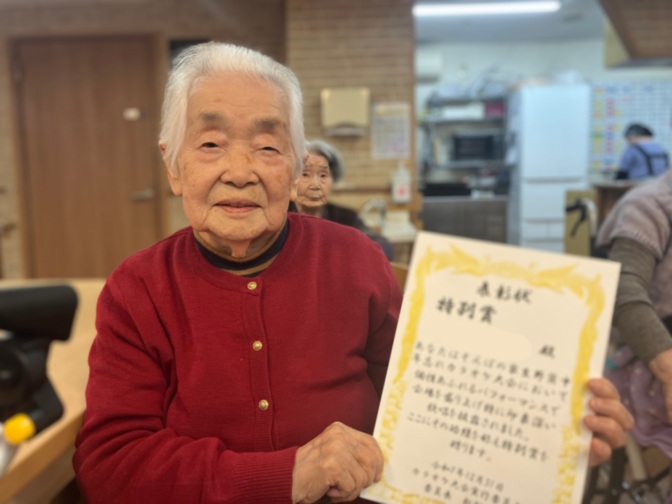 表彰状
特別賞
殿
あなたはそんぽの家生野巽中
年忘れカラオケ大会において
個性あふれるパフォーマンスで
会場を盛り上げ特に印象深い
歌唱を披露されました。
ここにその功績を称え特別賞を
贈ります。
令和7年12月31日
カラオケ大会実行委員会
委員長